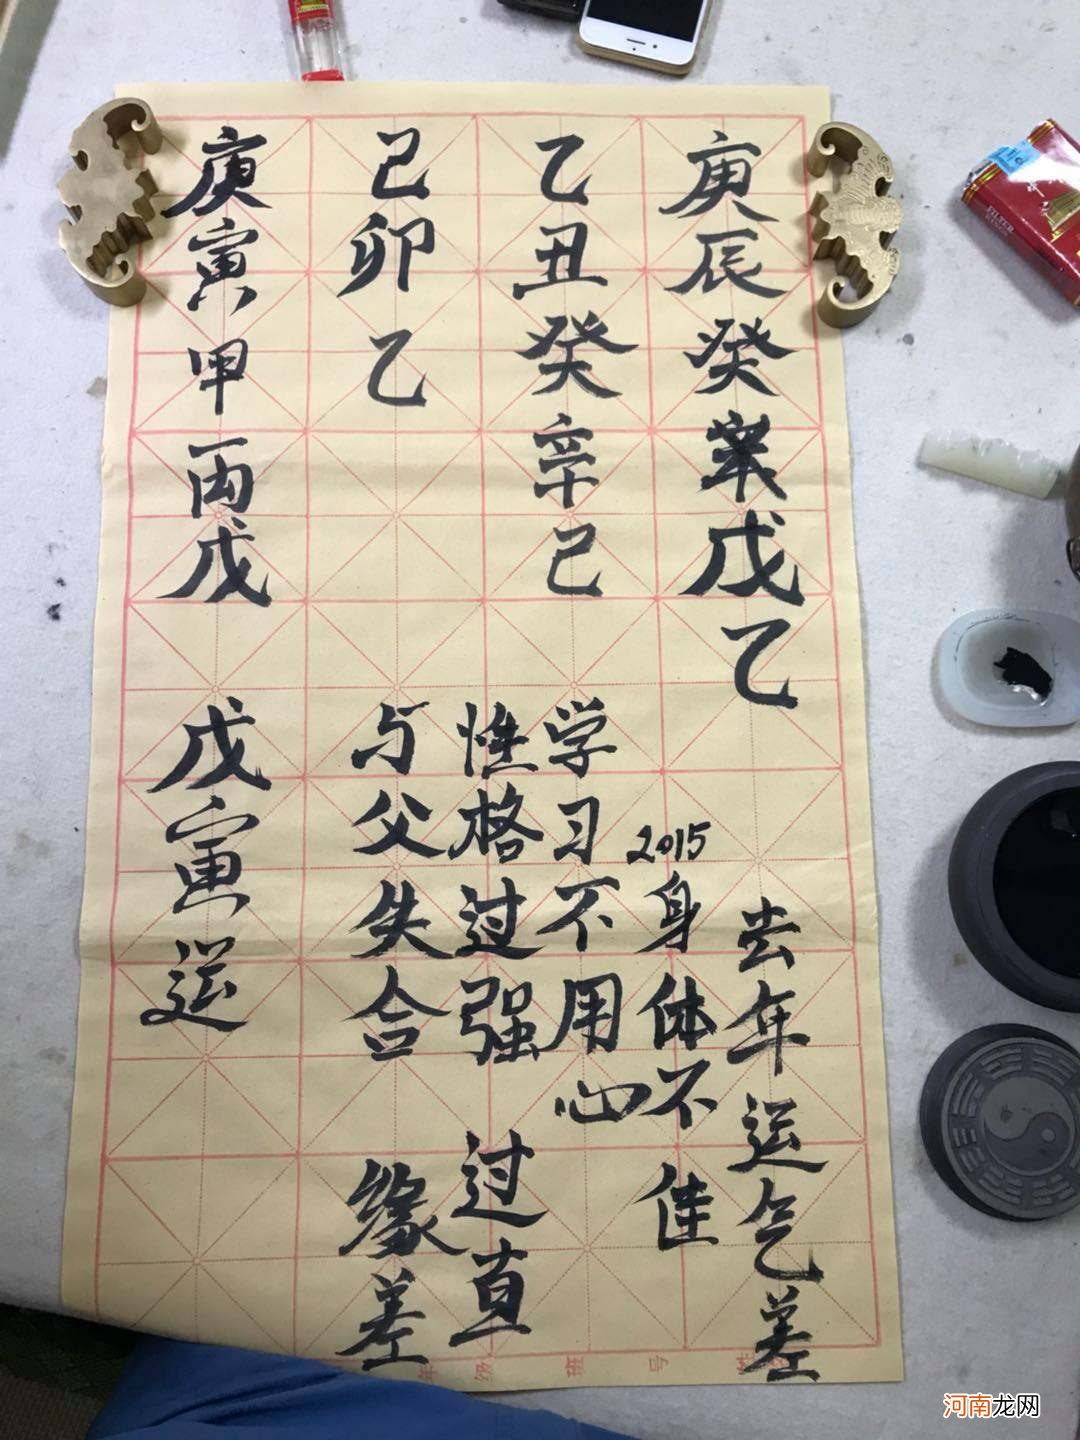 庚辰癸戊乙
乙丑癸辛己
己卯乙
庚寅甲丙戊
去年运气差
2015身体不佳
学习不用心
性格过强 过直
与父失合 缘差
戊寅运
年 级 班 号 姓
FILTER
河南龙网